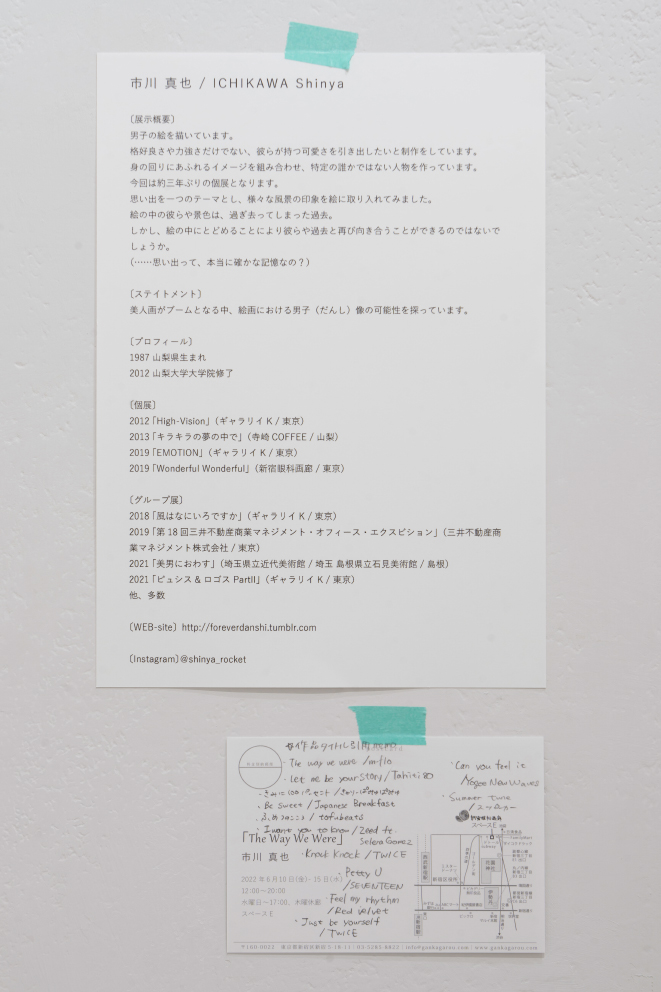 市川 真也 / ICHIKAWA Shinya
〔展示概要〕
男子の絵を描いています。
格好良さや力強さだけでない、彼らが持つ可愛さを引き出したいと制作をしています。
身の回りにあふれるイメージを組み合わせ、特定の誰かではない人物を作っています。
今回は約三年ぶりの個展となります。
思い出を一つのテーマとし、様々な風景の印象を絵に取り入れてみました。
絵の中の彼らや景色は、過ぎ去ってしまった過去。
しかし、絵の中にとどめることにより彼らや過去と再び向き合うことができるのではないで
しょうか。
(……思い出って、本当に確かな記憶なの？)
〔ステイトメント〕
美人画がブームとなる中、絵画における男子（だんし）像の可能性を探っています。
〔プロフィール〕
1987 山梨県生まれ
2012 山梨大学大学院修了
〔個展〕
2012「High-Vision」（ギャラリイ K / 東京）
2013「キラキラの夢の中で」（寺崎 COFFEE / 山梨）
2019「EMOTION」（ギャラリイ K / 東京）
2019「Wonderful Wonderful」（新宿眼科画廊 / 東京）
〔グループ展〕
2018「風はなにいろですか」（ギャラリイ K / 東京）
2019「第 18 回三井不動産商業マネジメント・オフィース・エクスビション」（三井不動産商
業マネジメント株式会社 / 東京）
2021「美男におわす」（埼玉県立近代美術館 / 埼玉 島根県立石見美術館 / 島根）
2021「ピュシス & ロゴス PartII」（ギャラリイ K / 東京）
他、多数
〔WEB-site〕http://foreverdanshi.tumblr.com
〔Instagram〕@shinya_rocket
作品タイトル引用
・The way we were / m-flo
・Let me be your story / Tahiti 80
・きみに100パーセント / きゃりーぱみゅぱみゅ
・Be Sweet / Japanese Breakfast
・ふめつのこころ / tofubeats
・I want you to know / Zedd ft. Selena Gomez
・Knock Knock / TWICE
・Pretty U / SEVENTEEN
・Feel my rhythm / Red velvet
・Just be yourself / TWICE
・Can you feel it
・Summer time
新宿眼科画廊
スペース E
「The Way We Were」
市川 真也
2022 年 6 月 10 日(金)- 15 日(水)
12:00～20:00
水曜日～17:00、木曜休廊
スペース E
花園神社
〒160-0022 東京都新宿区新宿 5-18-11 | 03-5285-8822 | info@gankagarou.com | www.gankagarou.com